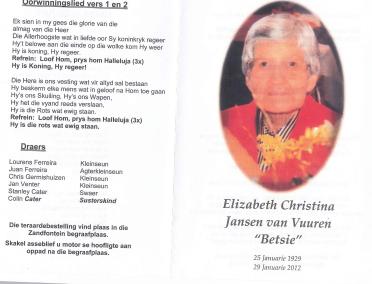 Oorwinningslied vers 1 en 2
Ek sien in my gees die glorie van die
almag van die Heer
Die Allerhoogste wat in liefde oor Sy koninkryk regeer
Hy't belowe aan die einde op die wolke kom Hy weer
Hy is koning, Hy regeer.
Refrein: Loof Hom, prys hom Halleluja (3x)
Hy is Koning, Hy regeer!
Die Here is ons vesting wat vir altyd sal bestaan
Hy beskerm elke mens wat in geloof na Hom toe gaan
Hy's ons Skuiling, Hy's ons Wapen,
Hy het die vyand reeds verslaan,
Hy is die Rots wat ewig staan.
Refrein: Loof Hom, prys hom Halleluja (3x)
Hy is die rots wat ewig staan.
Draers
Lourens Ferreira Kleinseun
Juan Ferreira Agterkleinseun
Chris Germishuizen Kleinseun
Jan Venter Kleinseun
Stanley Cater Swaer
Colin Cater Susterskind
Die teraardebestelling vind plaas in die
Zandfontein begraafplaas.
Skakel asseblief u motor se hoofligte aan
oppad na die begraafplaas.
Elizabeth Christina
Jansen van Vuuren
"Betsie"
25 Januarie 1929
29 Januarie 2012